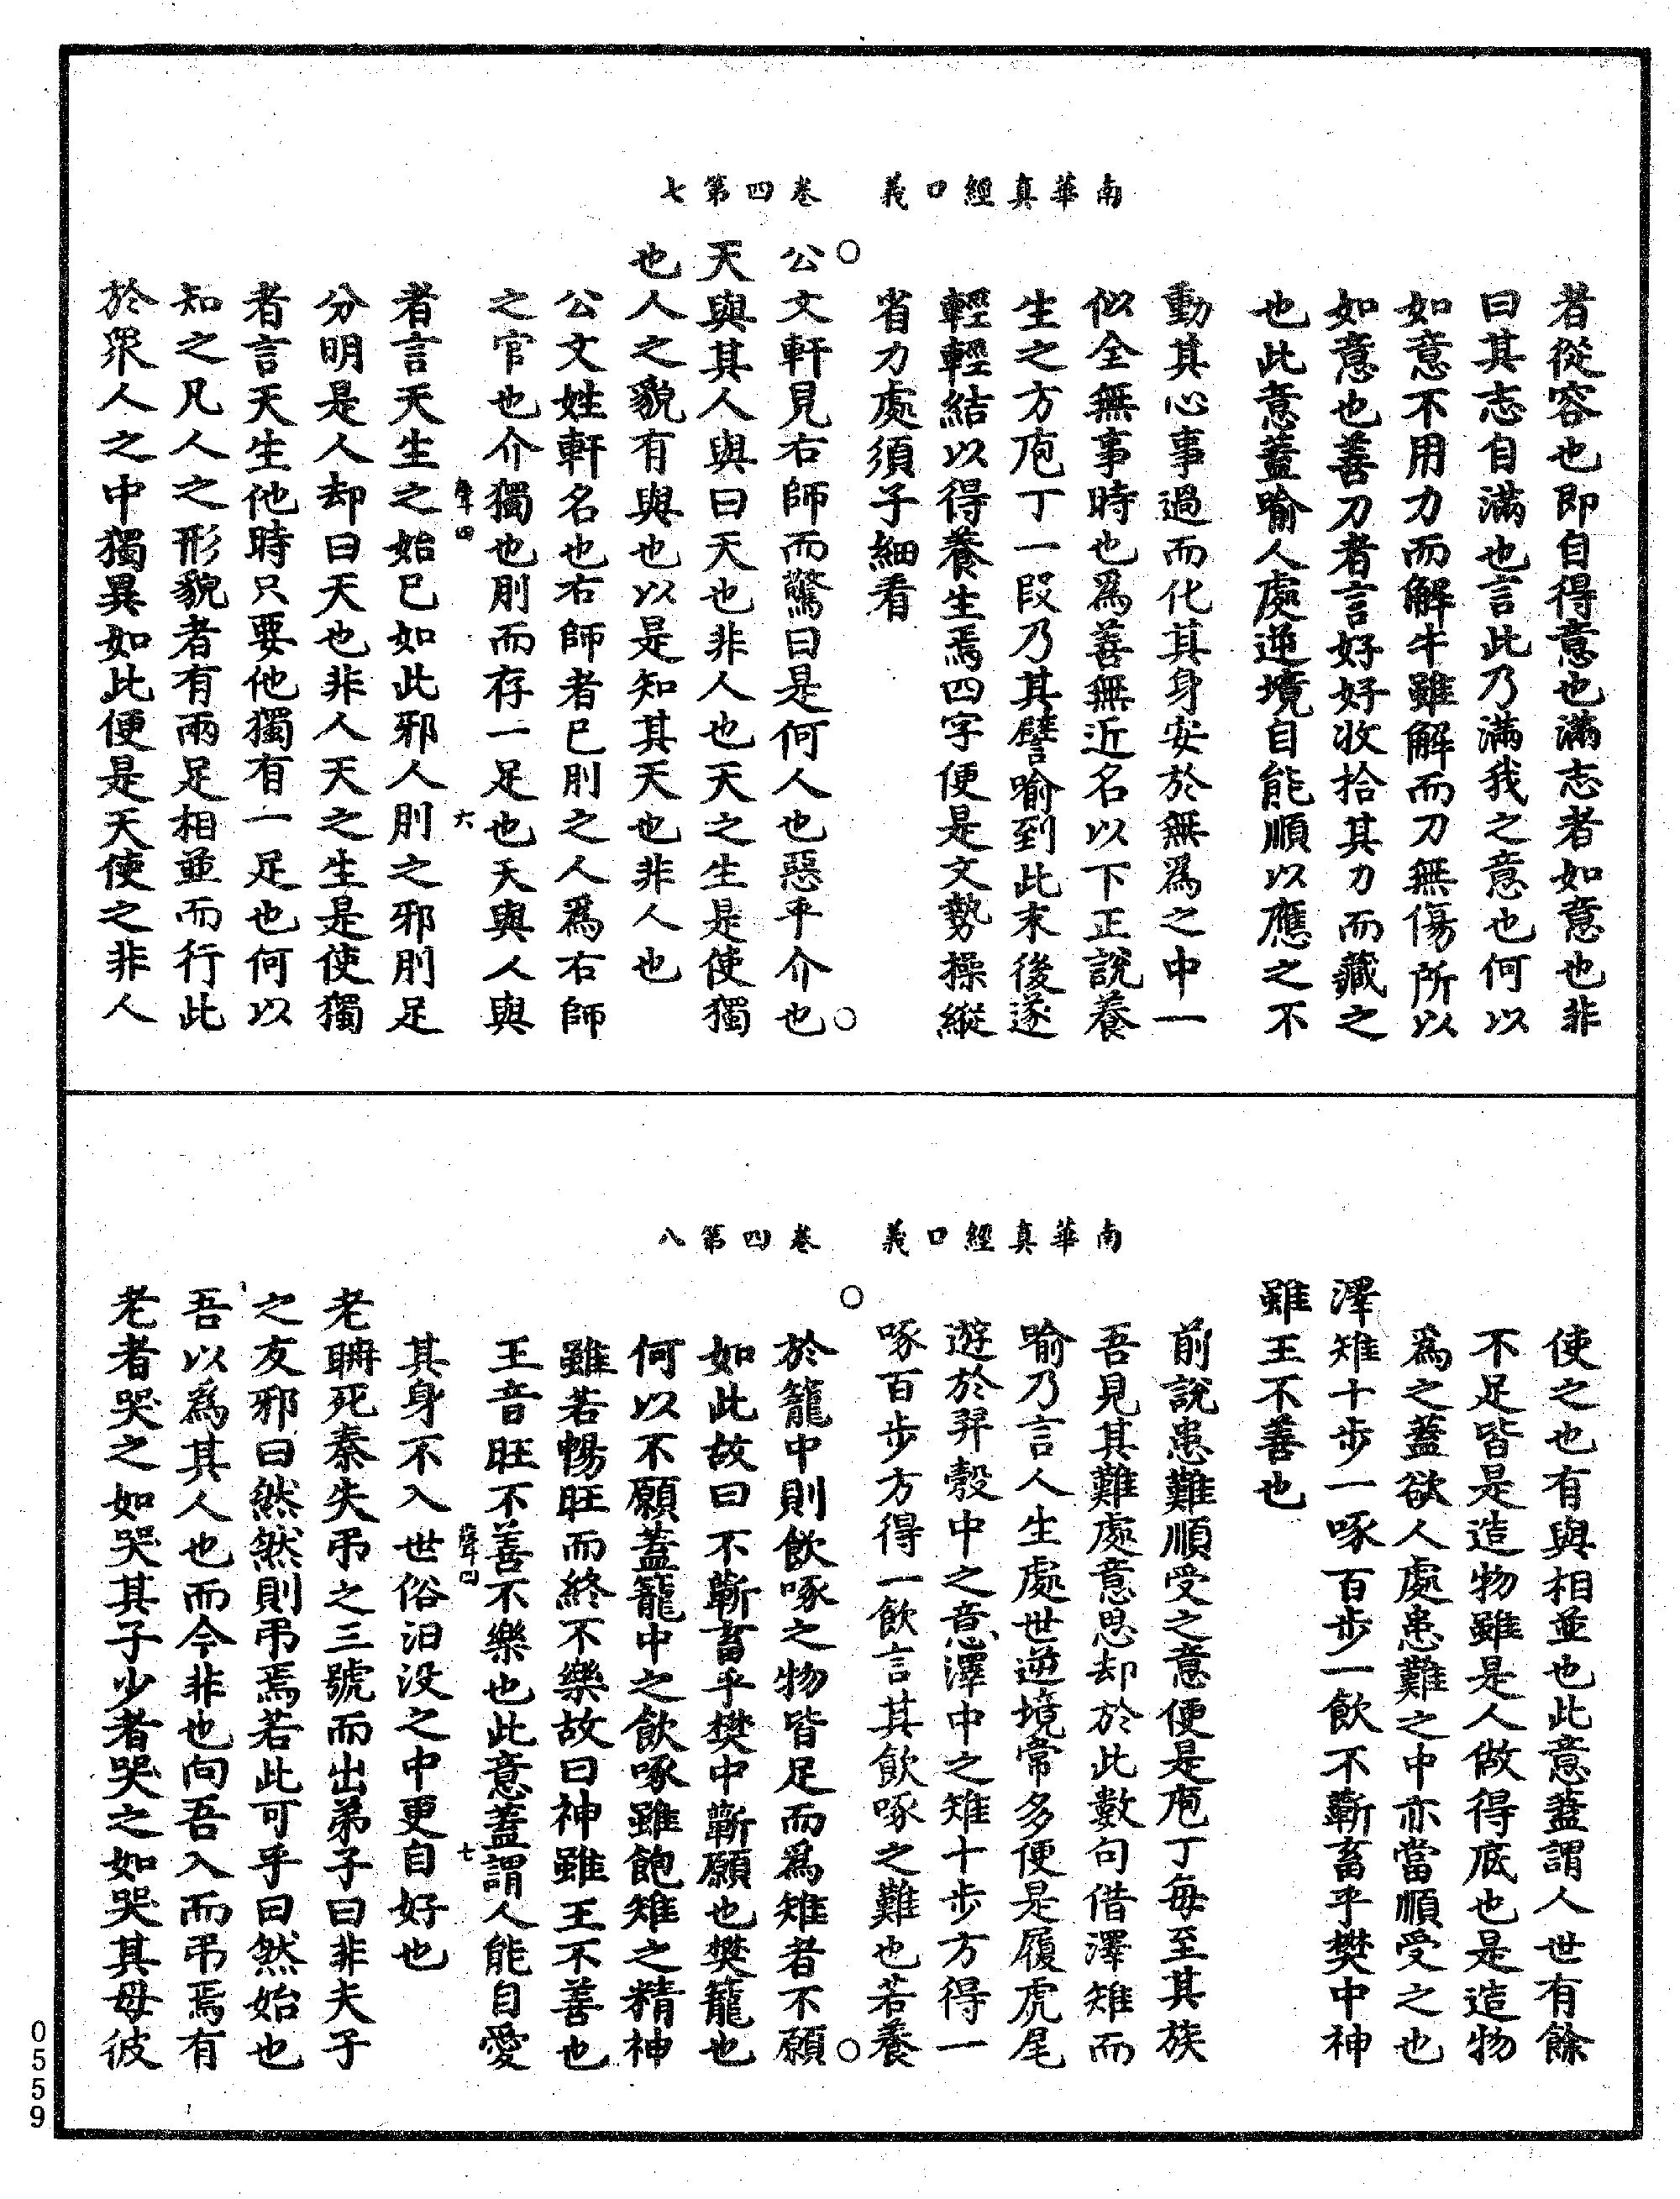 南華真經口義　卷四第七
者從容也即自得意也滿志者如意也非
曰其志自滿也言此乃滿我之意也何以
如意不用力而解牛雖解而刀無傷所以
如意也善刀者言好好收拾其刀而藏之
也此意蓋喻人處逆境自能順以應之不
動其心事過而化其身安於無為之中一
似全無事時也為善無近名以下正說養
生之方庖丁一段乃其譬喻到此末後遂
輕輕結以得養生焉四字便是文勢操縱
省力處須子細看
公文軒見右師而驚曰是何人也惡乎介也
天與其人與曰天也非人也天之生是使獨
也人之貌有與也以是知其天也非人也
公文姓軒名也右師者已刖之人為右師
之官也介獨也刖而存一足也天與人與
聲四　六
者言天生之始已如此邪人刖之邪刖足
分明是人却曰天也非人天之生是使獨
者言天生他時只要他獨有一足也何以
知之凡人之形貌者有兩足相並而行此
於眾人之中獨異如此便是天使之非人
南華真經口義　卷四第八
使之也有與相並也此意蓋謂人世有餘
不足皆是造物雖是人做得底也是造物
為之蓋欲人處患難之中亦當順受之也
澤雉十步一啄百步一飲不蘄畜乎樊中神
雖王不善也
前說患難順受之意便是庖丁每至其族
吾見其難處意思却於此數句借澤雉而
喻乃言人生處世逆境常多便是履虎尾
遊於羿彀中之意澤中之雉十步方得一
啄百步方得一飲言其飲啄之難也若養
於籠中則飲啄之物皆足而為雉者不願
如此故曰不蘄畜乎樊中蘄願也樊籠也
何以不願蓋籠中之飲啄雖飽雉之精神
雖若暢旺而終不樂故曰神雖王不善也
王音旺不善不樂也此意蓋謂人能自愛
聲四　七
其身不入世俗汩沒之中更自好也
老聃死秦失弔之三號而出弟子曰非夫子
之友邪曰然然則弔焉若此可乎曰然始也
吾以為其人也而今非也向吾入而弔焉有
老者哭之如哭其子少者哭之如哭其母彼
0559